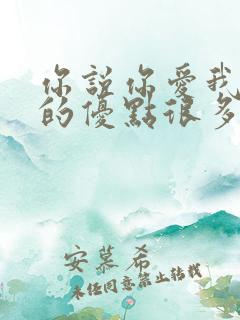 你說你愛我
的優點很多
安慕希
未经同意禁止转载